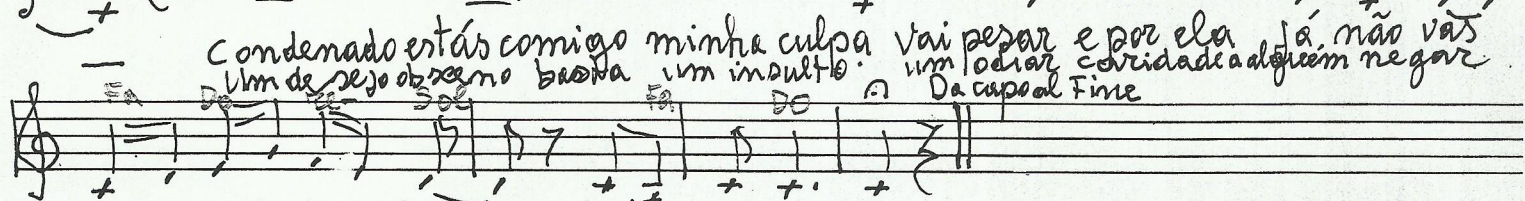 Condenado estás comigo minha culpa vai pesar e por ela já não vás
um desejo obsceno basta um insulto um odiar caridade a alguém negar
Da capo al Fine
Fa Do Sol Fa Do